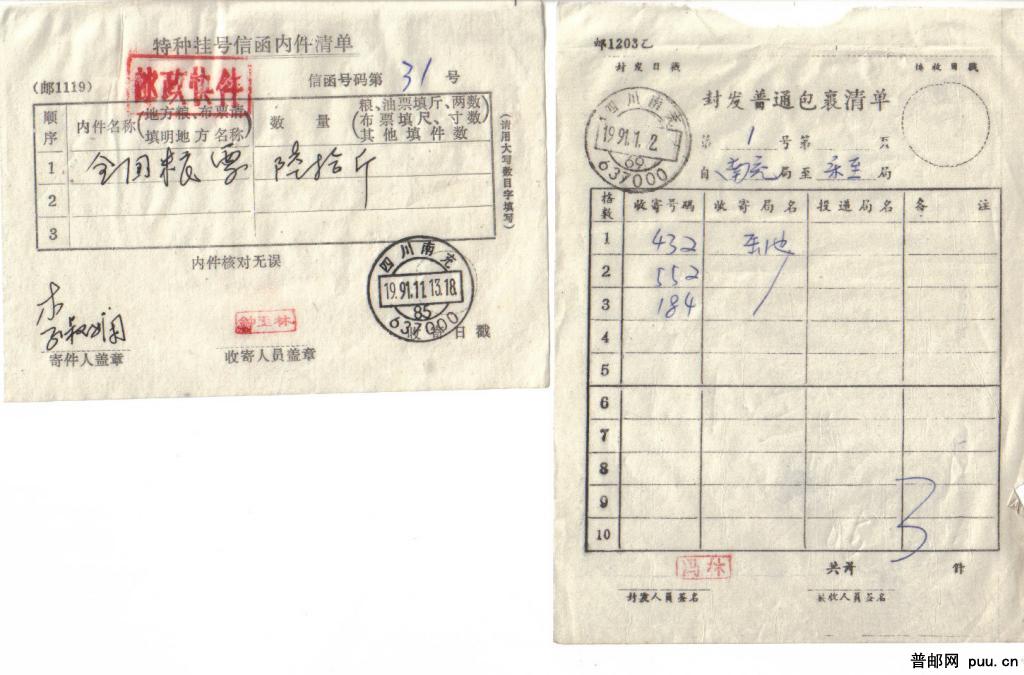 特种挂号信函内件清单
邮政快件
(邮1119)
信函号码第 31 号
顺序
内件名称(地方粮、布票请填明地方名称)
数量(粮、油票填斤、两数 布票填尺、寸数 其他填件数)
1 全国粮票 陆拾斤
2
3
(请用大写数目字填写)
内件核对无误
四川南充
19.91.11.13.18
85
637000
寄件人盖章
收寄人员盖章
日戳
邮1203乙
封发日戳
接收日戳
封发普通包裹清单
四川南充
1991.1.2
637000
第 1 号第 页
自 南充 局至 乐至 局
格数 收寄号码 收寄局名 投递局名 备注
1 432
2 552
3 184
4
5
6
7
8
9
10
3
共计 件
封发人员签名
接收人员签名
普邮网 puu.cn